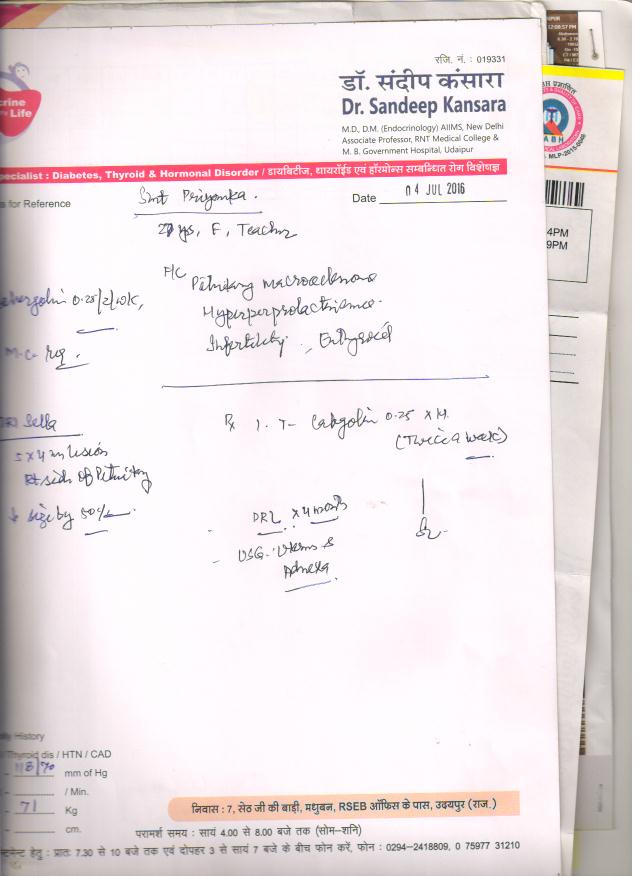 रजि. नं. : 019331
डॉ. संदीप कंसारा
Dr. Sandeep Kansara
M.D., D.M. (Endocrinology) AIIMS, New Delhi
Associate Professor, RNT Medical College &
M. B. Government Hospital, Udaipur
crine
Life
pecialist : Diabetes, Thyroid & Hormonal Disorder / डायबिटीज, थायरॉईड एवं हॉरमोन्स सम्बन्धित रोग विशेषज्ञ
s for Reference
Smt Priyanka.
Date 04 JUL 2016
yrs, F, Teacher
Pituitary Macroadenoma
0.25/2/wk,
Hyperprolactinemia.
M.C. reg.
Infertility, Euthyroid
Sella
Rx 1. T- Cabgolin 0.25 x
(Twice a week)
5 x 4 m lesion
Rt side of Pituitary
↓ size by 50%
PRL x 4 months
- USG. Uterus &
Adnexa
ly History
Thyroid dis / HTN / CAD
118/70 mm of Hg
/ Min.
- 71 Kg
- cm.
निवास : 7, सेठ जी की बाड़ी, मधुबन, RSEB ऑफिस के पास, उदयपुर (राज.)
परामर्श समय : सायं 4.00 से 8.00 बजे तक (सोम-शनि)
न्टमेन्ट हेतु : प्रातः 7.30 से 10 बजे तक एवं दोपहर 3 से सायं 7 बजे के बीच फोन करें, फोन : 0294-2418809, 0 75977 31210
12:08:57 PM
BH प्रमाणित
ABH
MLP-2015-0046
4PM
9PM